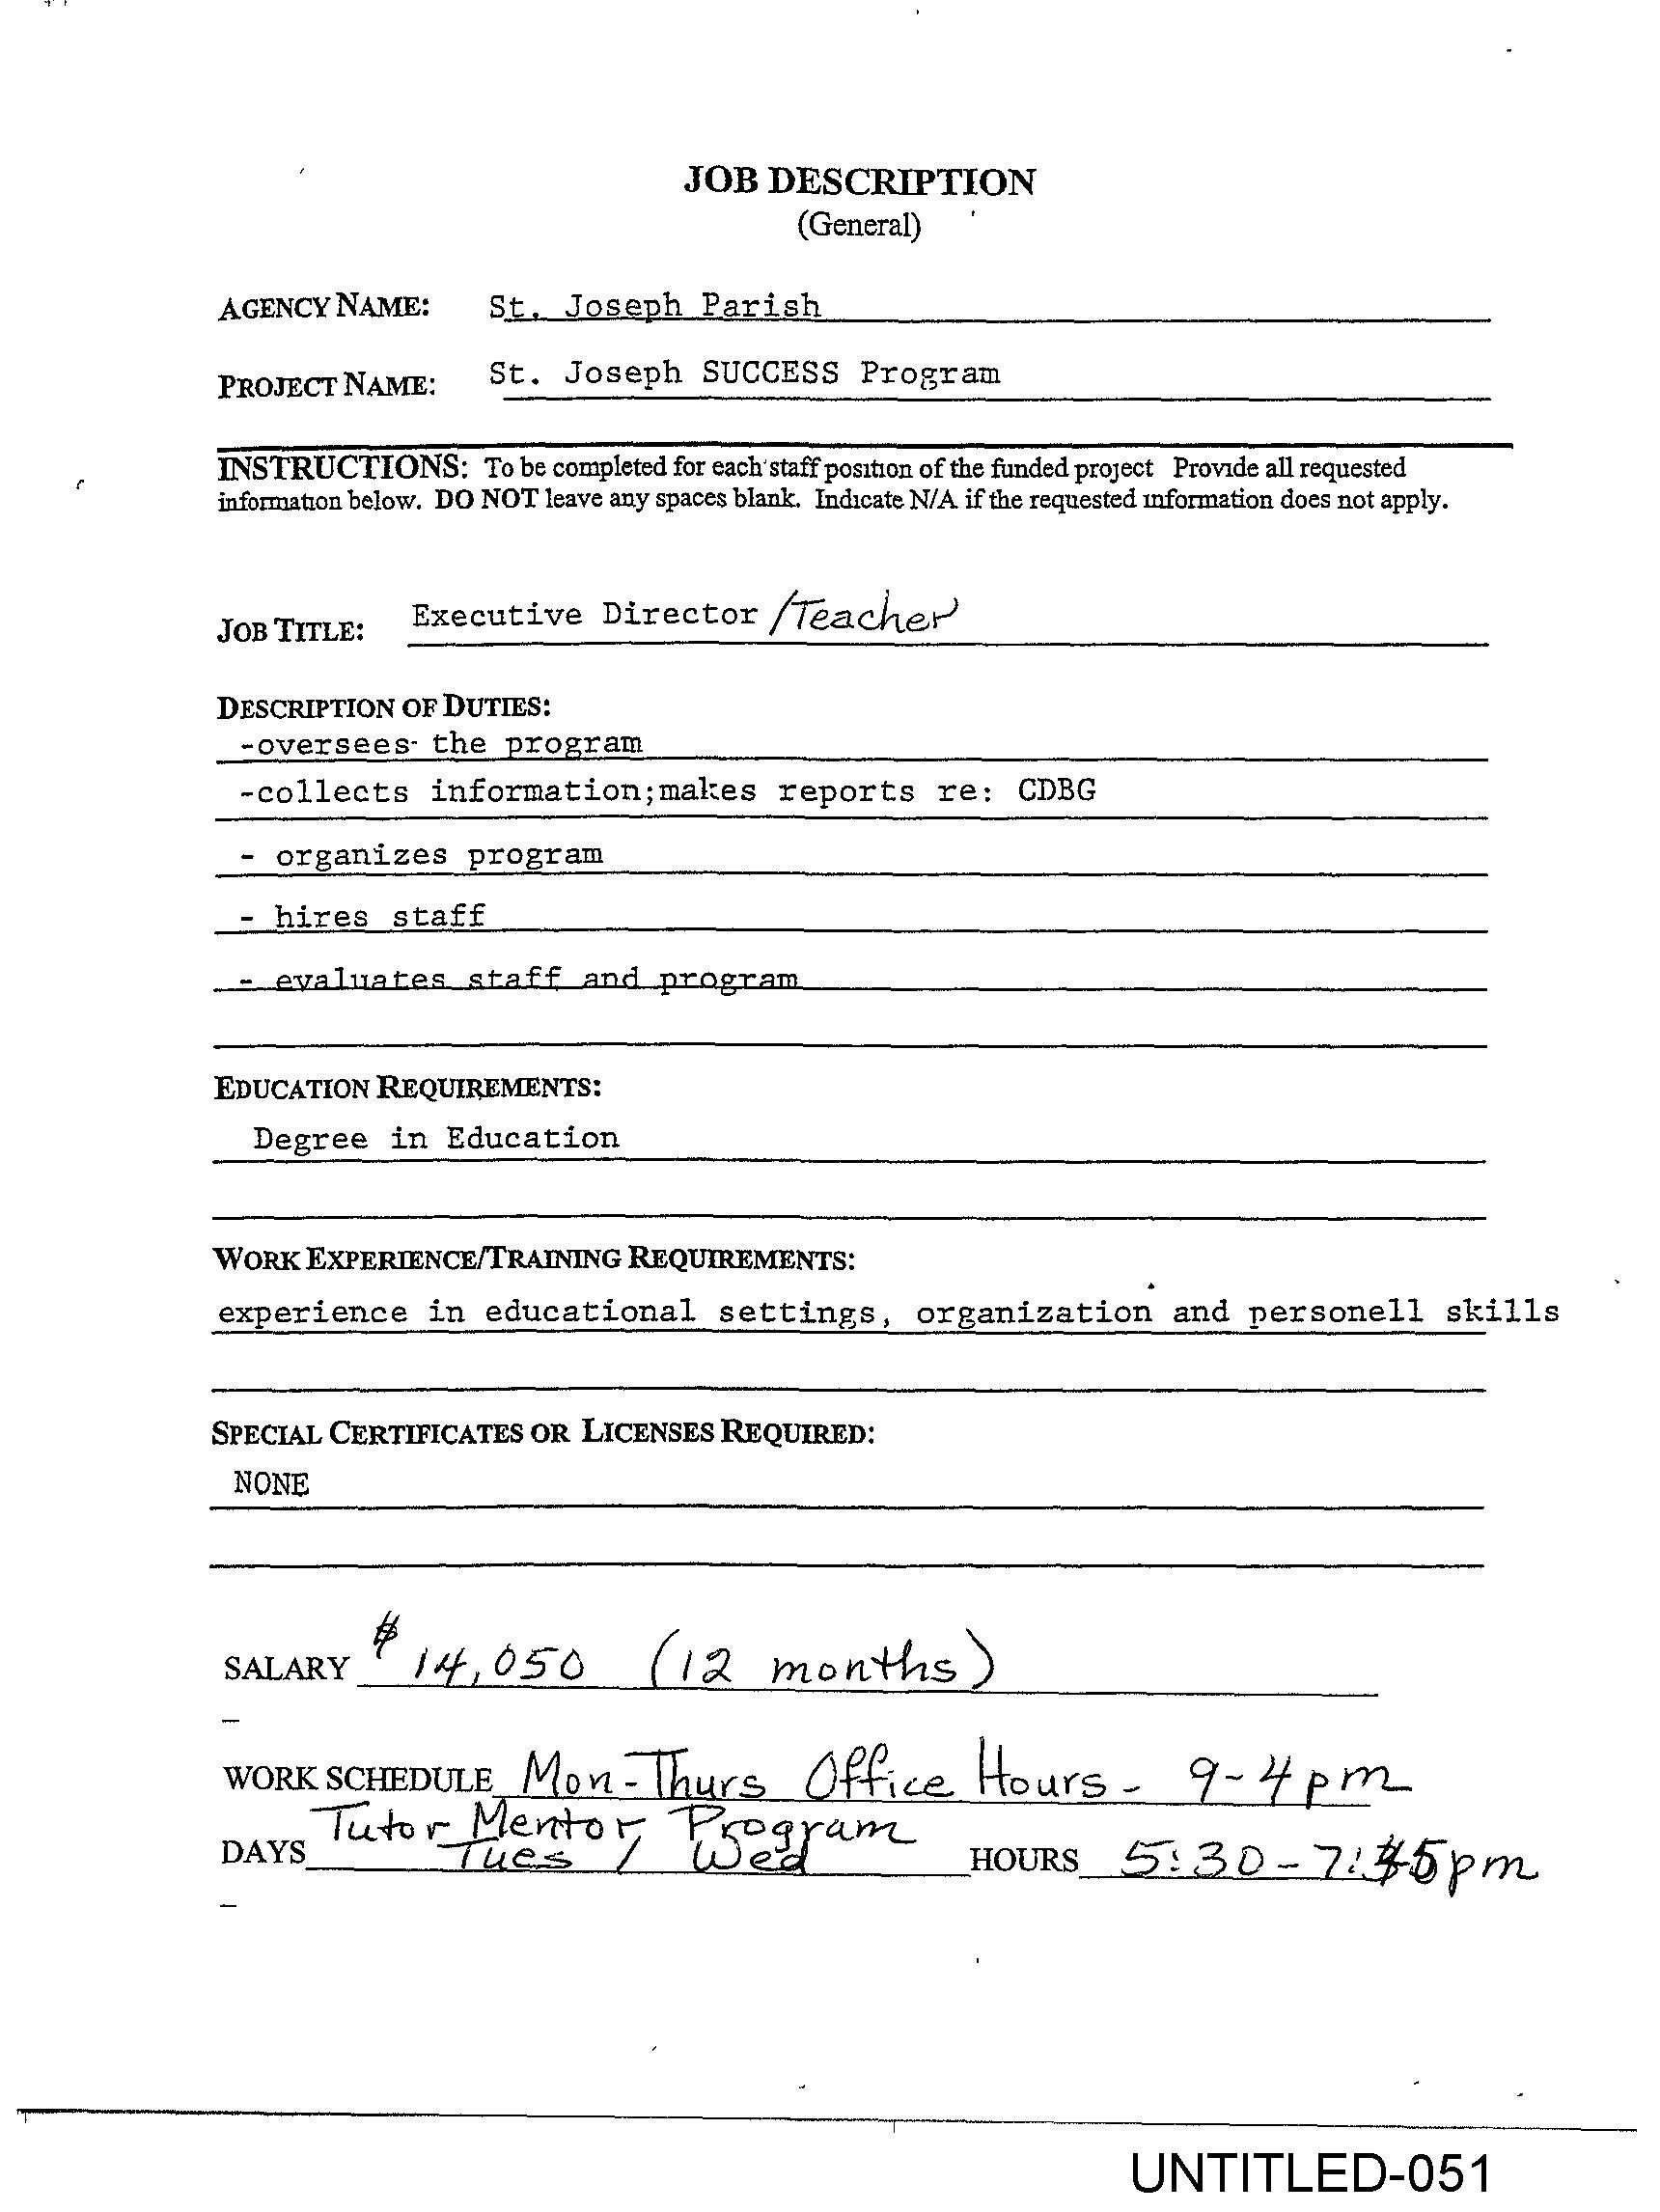 JOB DESCRIPTION
(General)
AGENCY NAME: St. Joseph Parish
PROJECT NAME: St. Joseph SUCCESS Program
INSTRUCTIONS: To be completed for each staff position of the funded project Provide all requested
information below. DO NOT leave any spaces blank. Indicate N/A if the requested information does not apply.
JOB TITLE: Executive Director /Teacher
DESCRIPTION OF DUTIES:
-oversees the program
-collects information;makes reports re: CDBG
- organizes program
- hires staff
- evaluates staff and program
EDUCATION REQUIREMENTS:
Degree in Education
WORK EXPERIENCE/TRAINING REQUIREMENTS:
experience in educational settings, organization and personell skills
SPECIAL CERTIFICATES OR LICENSES REQUIRED:
NONE
SALARY $ 14,050 (12 months)
WORK SCHEDULE Mon-Thurs Office Hours - 9-4pm
Tutor Mentor Program
DAYS Tues / Wed HOURS 5:30-
UNTITLED-051